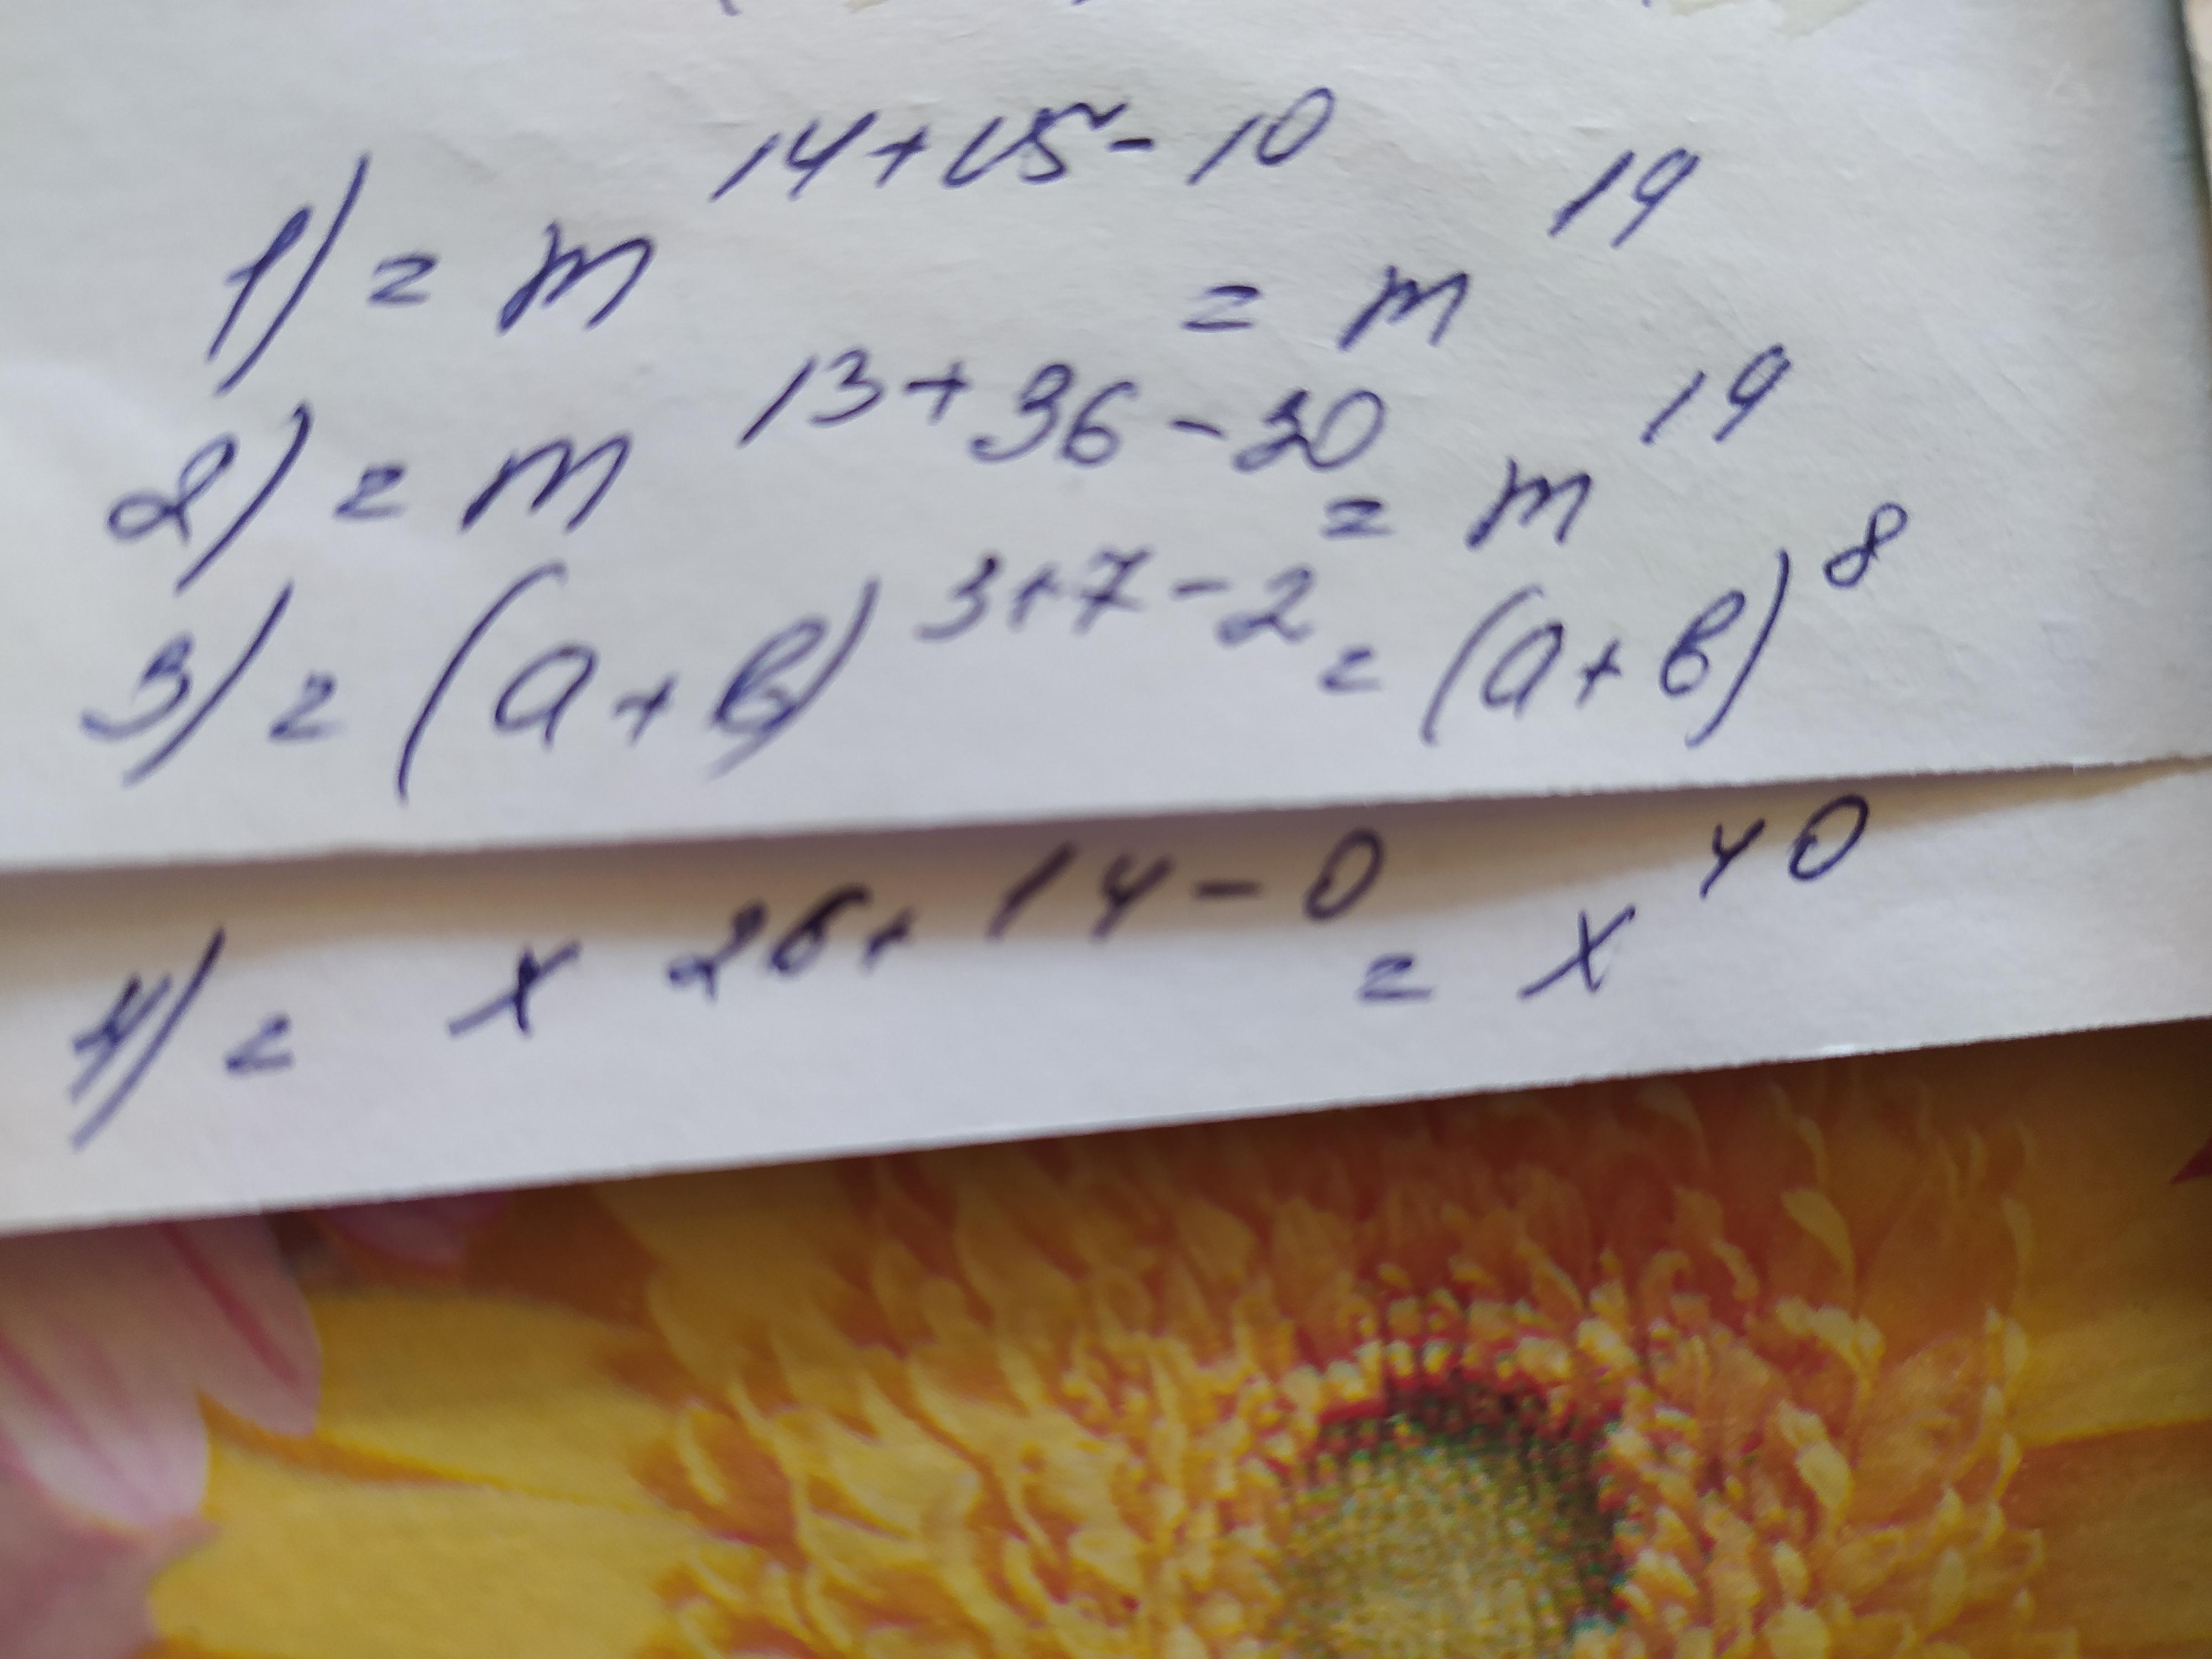 1) = m^14+15-10 = m^19
2) = m^13+36-30 = m^19
3) = (a+b)^3+7-2 = (a+b)^8
4) = x^26+14-0 = x^40